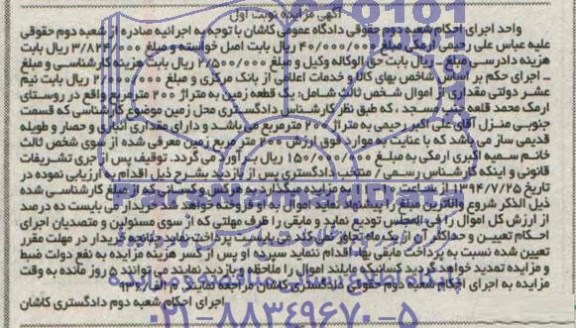 آگهی مزایده نوبت اول
واحد اجرای احکام شعبه دوم حقوقی دادگاه عمومی کاشان با توجه به اجرائیه صادره از شعبه دوم حقوقی
علیه عباس علی رحیمی آرمکی مبلغ ۴۰/۰۰۰/۰۰۰ ریال بابت اصل خواسته و مبلغ ۳/۸۲۴/۰۰۰ ریال بابت
هزینه دادرسی و مبلغ ریال بابت حق الوکاله وکیل و مبلغ ۲/۵۰۰/۰۰۰ ریال بابت هزینه کارشناسی و مبلغ
ـ اجرای حکم بر اساس شاخص بهای کالا و خدمات اعلامی از بانک مرکزی و مبلغ ریال بابت نیم
عشر دولتی مقداری از اموال شخص ثالث شامل: یک قطعه زمین به متراژ ۲۰۰ مترمربع واقع در روستای
ارمک محمد قلعه جنب مسجد ، که طبق نظر کارشناس دادگستری محل زمین موضوع کارشناسی که قسمت
جنوبی منزل آقای علی اکبر رحیمی به متراژ ۲۰۰ مترمربع می باشد و دارای مقداری انباری و حصار و طویله
قدیمی ساز می باشد که با عنایت به موارد فوق ارزش ۲۰۰ متر مربع زمین معرفی شده از سوی شخص ثالث
خانم سمیه اکبری ارمکی به مبلغ ۱۵۰/۰۰۰/۰۰۰ ریال برآورد می گردد. توقیف پس از جری تشریفات
قانونی و اینکه کارشناس رسمی / منتخب دادگستری پس از بازدید بشرح ذیل اقدام به ارزیابی نموده در
تاریخ ۱۳۹۴/۷/۲۵ از ساعت به مزایده میگذارد به هرکس و کسانی که از مبلغ کارشناسی شده
ذیل الذکر شروع و بالاترین مبلغ را پیشنهاد نماید اموال به او فروخته خواهد شد خریدار می بایست ده درصد
از ارزش کل اموال را فی المجلس تودیع نماید و مابقی را ظرف مهلتی که از سوی مسئولین و متصدیان اجرای
احکام تعیین و حداکثر آن از یک ماه تجاوز نمی کند می بایست پرداخت نماید چنانچه خریدار در مهلت مقرر
تعیین شده نسبت به پرداخت مابقی بها اقدام ننماید سپرده او پس از کسر هزینه مزایده به نفع دولت ضبط
و مزایده تمدید خواهد گردید کسانیکه مایلند اموال را ملاحظه و بازدید نمایند می توانند ۵ روز مانده به وقت
مزایده به اجرای احکام شعبه دوم حقوقی دادگستری کاشان مراجعه نمایند.
اجرای احکام شعبه دوم دادگستری کاشان
۰۲۱-۸۸۳۴۹۶۷۰-۵